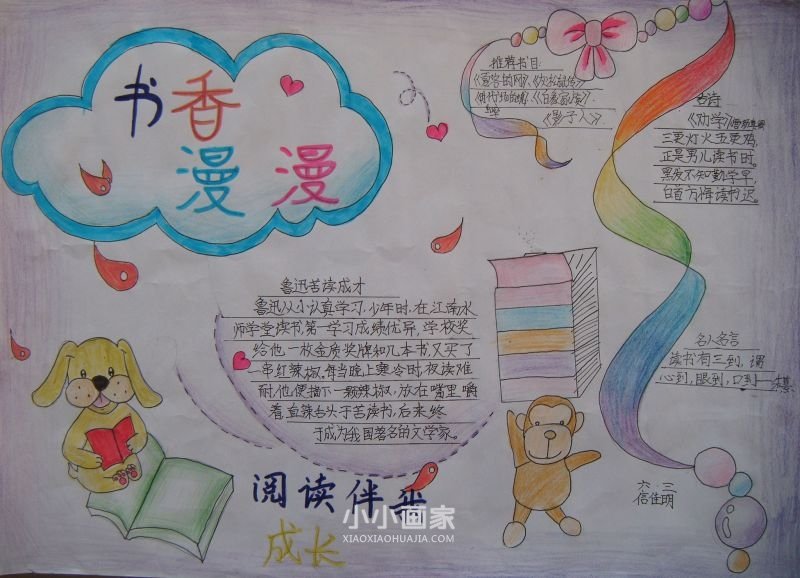 书香
漫漫
推荐书目:
《夏洛的网》、《大林和小林》
《影子人》。
古诗
《劝学》唐颜真卿
三更灯火五更鸡,
正是男儿读书时。
黑发不知勤学早,
白首方悔读书迟。
鲁迅苦读成才
鲁迅从小认真学习,少年时,在江南水
师学堂读书第一学习成绩优异,学校奖
给他一枚金质奖牌和几本书,又买了
一串红辣椒,每当晚上寒冷时夜读难
耐,他便摘下一颗辣椒,放在嘴里嚼
着,直辣
苦读书,后来终
于成为我国著名的文学家。
名人名言
读书有三到,谓
心到,眼到,口到——朱熹
阅读伴我
成长
六.三
信佳明
小小画家
XIAOXIAOHUAJIA.COM